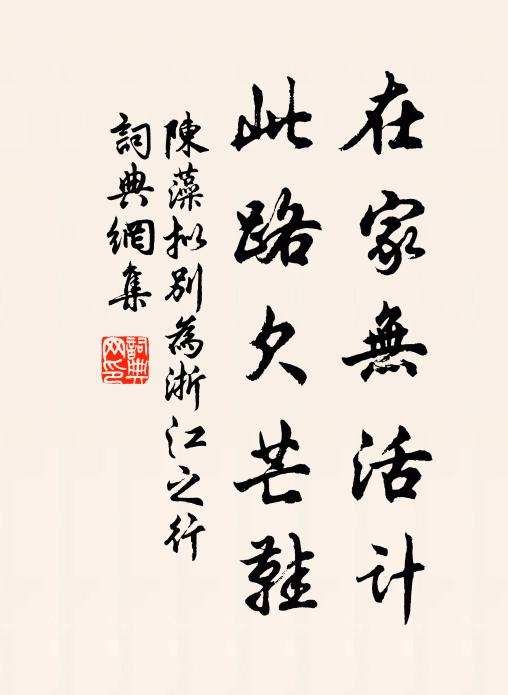 在家無活計
此路欠芒鞋
陳藻拟別為浙江之行
詞典網集
詞典網印